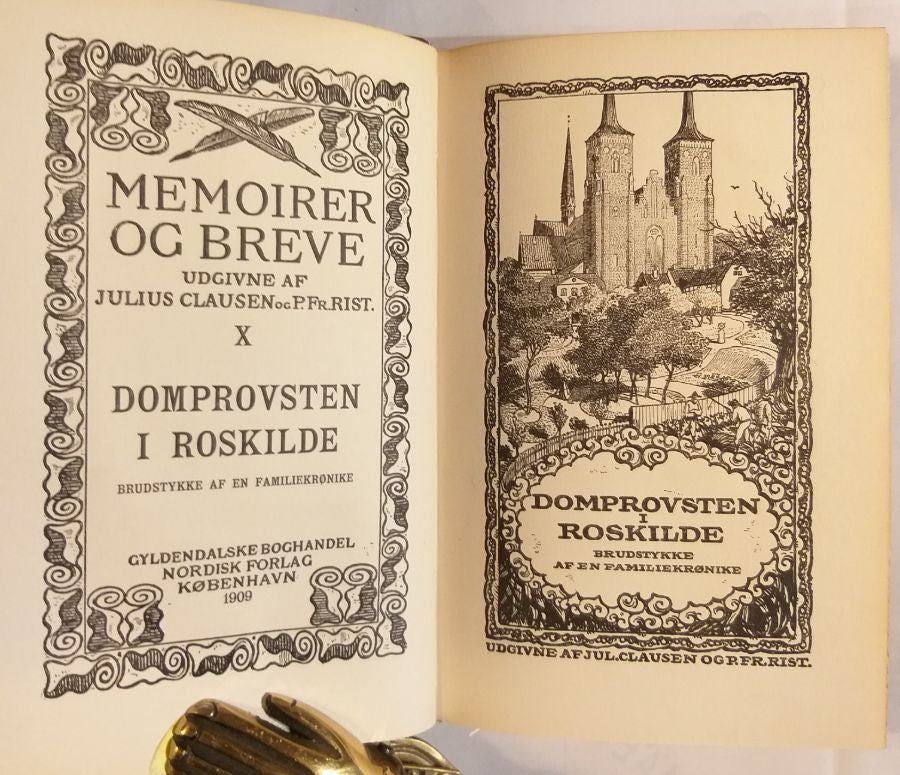 MEMOIRER
OG BREVE
UDGIVNE AF
JULIUS CLAUSEN OG P. FR. RIST.
X
DOMPROVSTEN
I ROSKILDE
BRUDSTYKKE AF EN FAMILIEKRØNIKE
GYLDENDALSKE BOGHANDEL
NORDISK FORLAG
KØBENHAVN
1909
DOMPROVSTEN
I
ROSKILDE
BRUDSTYKKE
AF EN FAMILIEKRØNIKE
UDGIVNE AF JUL. CLAUSEN OG P. FR. RIST.